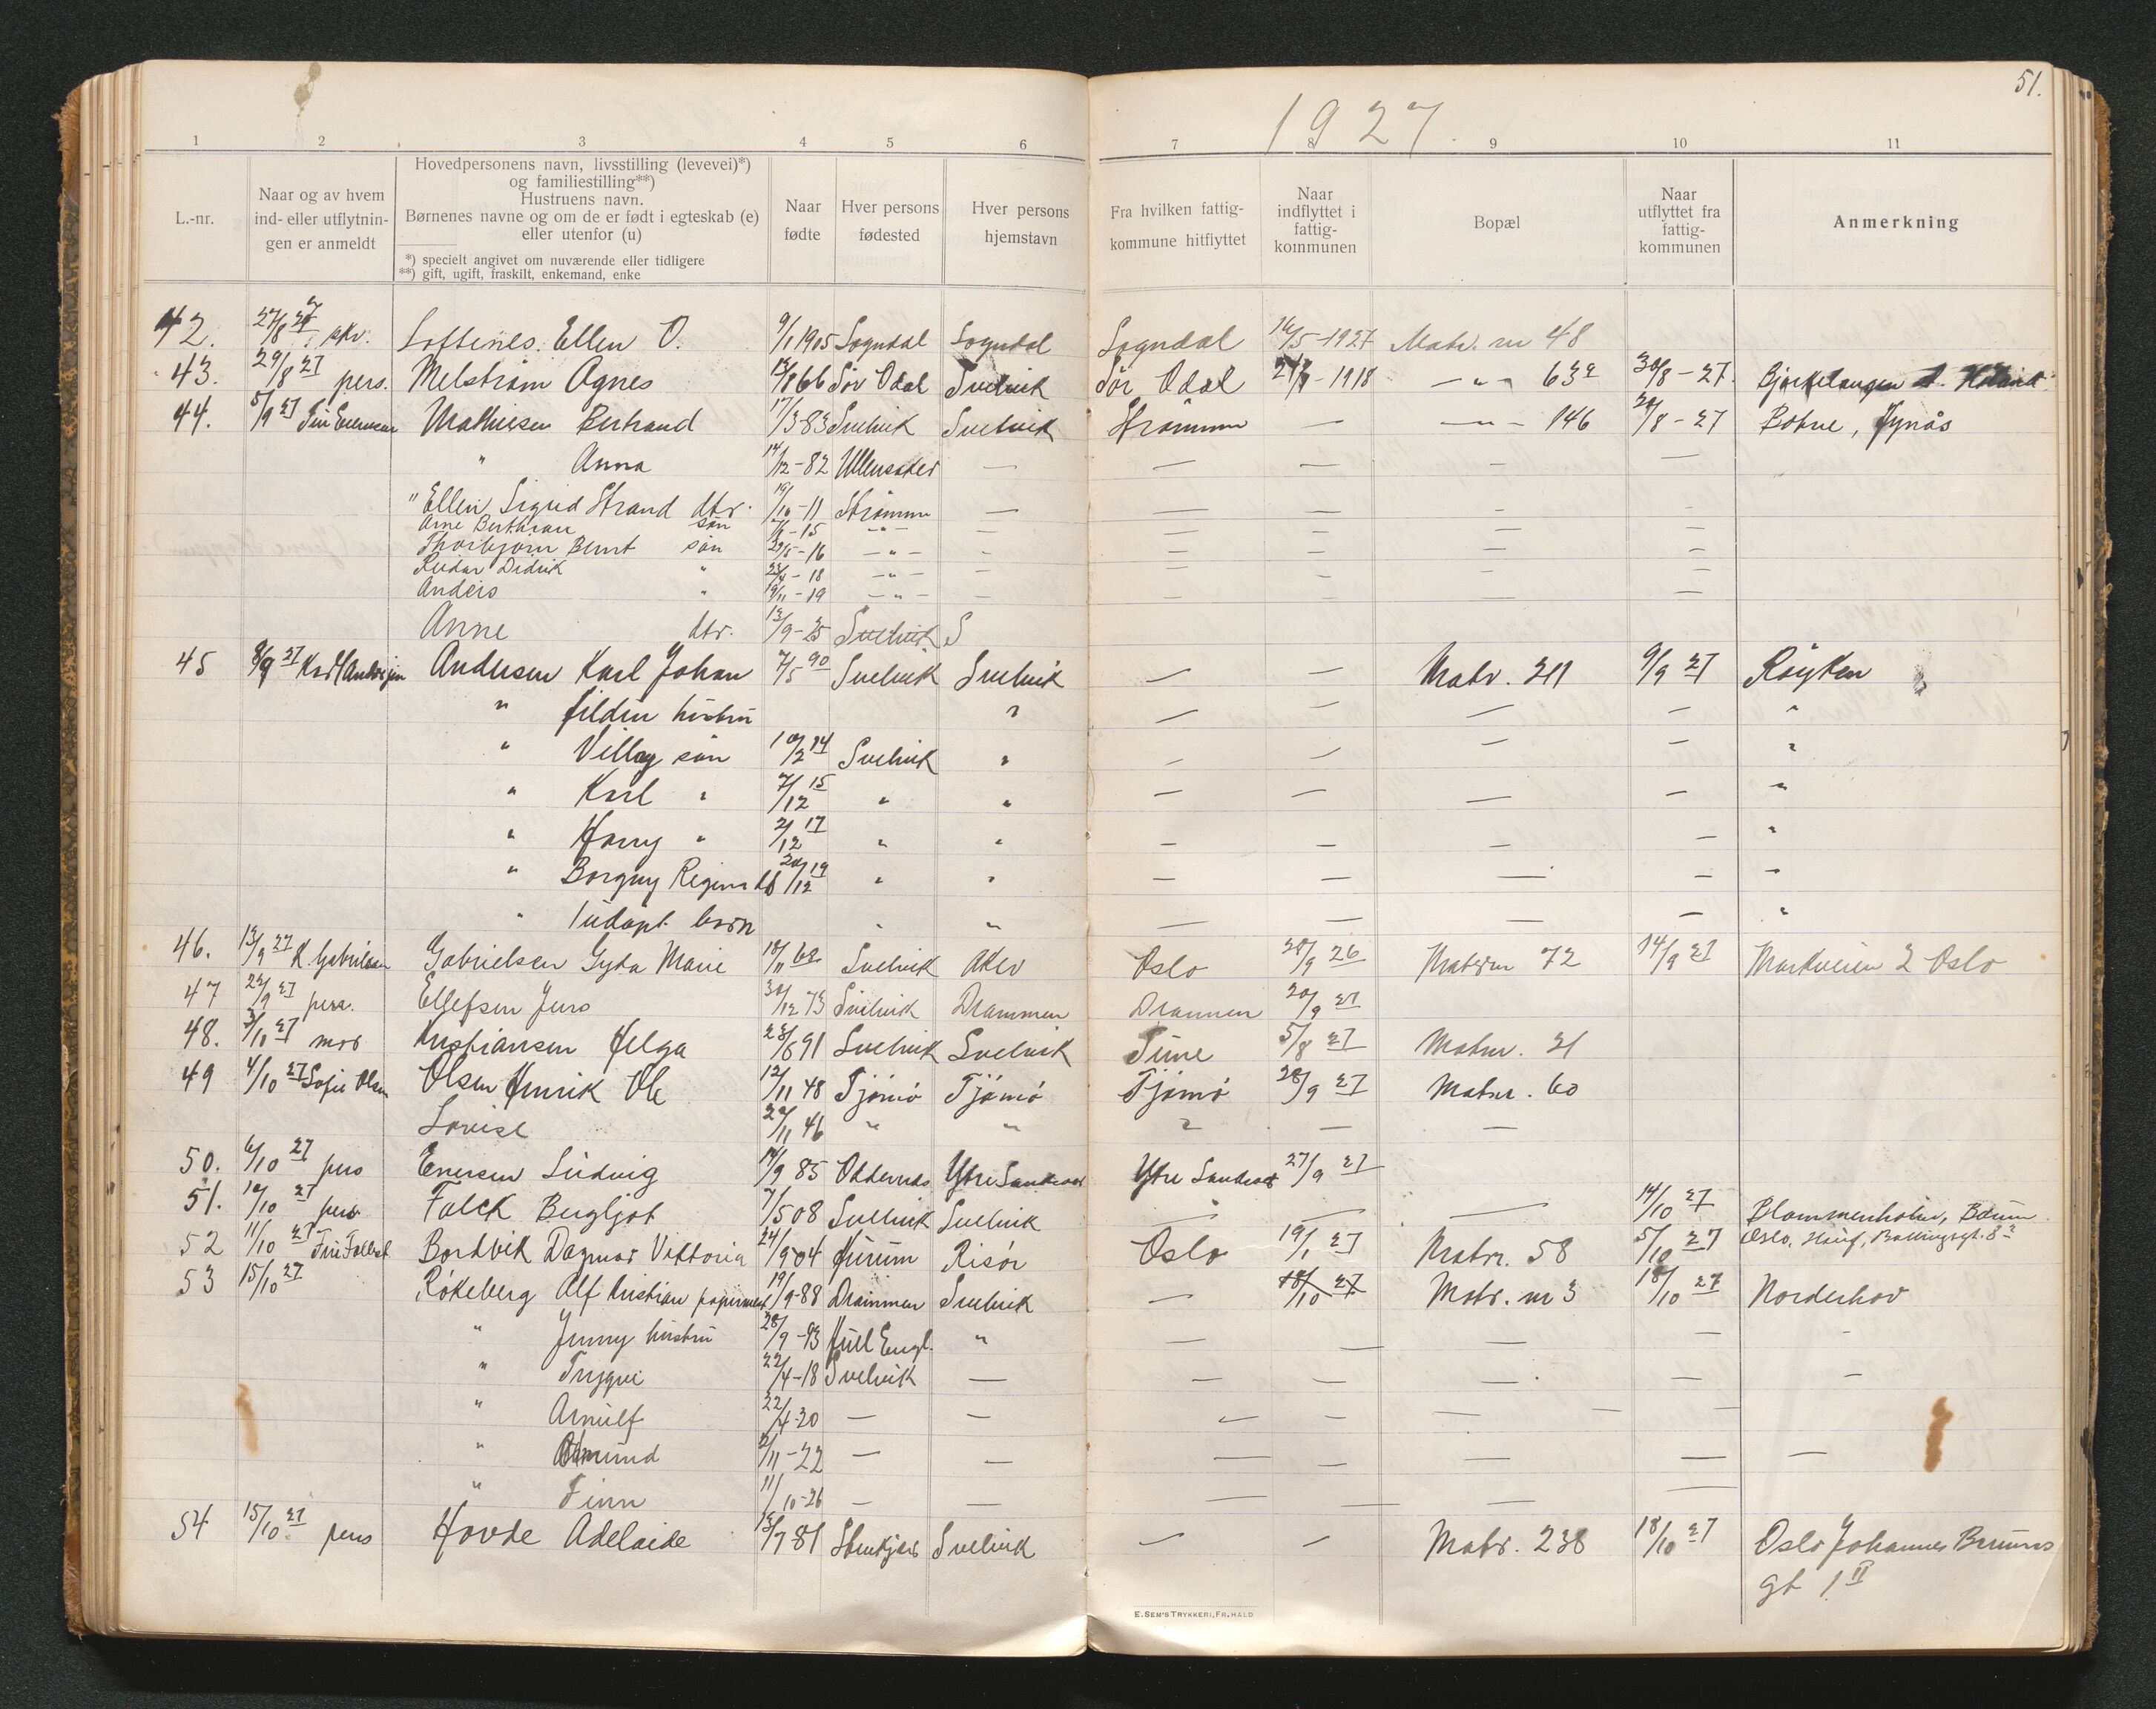 51.
1927.
1 2 3 4 5 6 7 8 9 10 11
L.-nr.
Naar og av hvem
ind- eller utflytnin-
gen er anmeldt
Hovedpersonens navn, livsstilling (levevei)*)
og familiestilling**)
Hustruens navn.
Børnenes navne og om de er født i egteskab (e)
eller utenfor (u)
*) specielt angivet om nuværende eller tidligere
**) gift, ugift, fraskilt, enkemand, enke
Naar
fødte
Hver persons
fødested
Hver persons
hjemstavn
Fra hvilken fattig-
kommune hitflyttet
Naar
indflyttet i
fattig-
kommunen
Bopæl
Naar
utflyttet fra
fattig-
kommunen
Anmerkning
42. 27/8 27 skr. Loftenes. Ellen O. 9/1 1905 Sogndal Sogndal Sogndal 16/5-1927 Matr. nr 48
43. 29/8 27 pers. Melstrøm Agnes 66 Sør Odal Svelvik Sør Odal - 1918 — " — 63a 30/8 - 27
44. 5/9 27 Mathiesen Bertrand 17/3-83 Svelvik Svelvik Strømm — — " — 146 /8 - 27 Botne,
" Anna 14/12 - 82 Ullensaker — — — — —
" Ellen Sigrid Strand dtr. 19/10 - 11 Strømm — — — - -
Arne Berthran søn - 15 — " — — — — — —
Thorbjørn Bernt søn 29/5 - 16 — " — - — — — —
Reidar Didrik " 23/4 - 18 — " — — — - — —
Anders " 19/11 - 19 — " — — — - — —
Anne dtr. 13/9 - 25 Svelvik S
45 8/9 27 Andersen Karl Johan 7/5 90 Svelvik Svelvik — — Matr. 211 9/9 27 Røyken
" hustru " — — — — "
" Villy søn 10/2 14 Svelvik " — — — — "
" Karl " 7/12 15 " " — — — — "
" Harry " 2/12 17 " " — — — "
" Borgny Regina 20/12 19 " " — — — — "
" 1 udøpt barn " " — — — — "
46. 13/9 27 K. Gabrielsen Gabrielsen Gyda Marie 18/11 62 Svelvik Aker Oslo 20/9 26 Matr nr 72 14/9 27 Markveien 2 Oslo
47 22/9 27 pers. Ellefsen Jens 30/12 73 Svelvik Drammen Drammen 20/9 27
48. 3/10 27 mor Kristiansen Helga 23/6 91 Svelvik Svelvik Tune 5/8 27 Matnr. 21
49 4/10 27 Sofie Olsen Olsen Henrik Ole 12/11 48 Tjømø Tjømø Tjømø 28/9 27 Matnr. 60
Lovise 29/11 46 " " " — —
50. 6/10 27 pers Enersen Ludvig 14/9 85 Oddernes Ytre Sandsvær Ytre Sandsvær 27/9 27
51. 10/10 27 pers Falck Bergljot 7/5 08 Svelvik Svelvik — — — 14/10 27 Blommenholm, Bærum
52 11/10 27 Bordvik Dagmar Viktoria 24/9 04 Hurum Risør Oslo 19/1 27 Matr. 58 5/10 27 Oslo,
53 15/10 27 Røkeberg Alf Kristian 19/9-88 Drammen Svelvik — 18/10 27 Matr. nr 3 18/10 27 Norderhov
" Jenny hustru 28/9 - 93 Hull Engl. " — — — — -
" Trygve 22/4 - 18 Svelvik — — — — — —
" Arnulf 22/4-20 — — — — — — —
" 2/11 - 22 — — — — — — —
" Finn 11/10-26 — — — — — —
54 15/10 27 pers Hovde Adelaide 13/7 81 Stenkjær Svelvik — — Matr. 238 18/10 27 Oslo Johannes Bruuns
gt 1 II
E. SEM'S TRYKKERI, FR.HALD